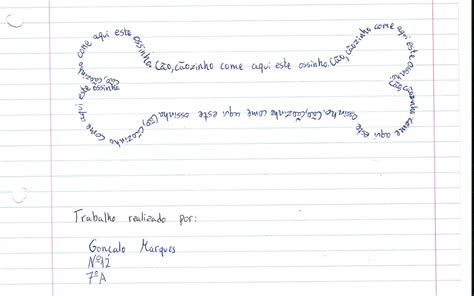 Cão, cãozinho come aqui este ossinho.
Cão, cãozinho come aqui este ossinho.
Cão, cãozinho come aqui este ossinho.
Cão, cãozinho come aqui este ossinho.
Cão, cãozinho come aqui este ossinho.
Cão, cãozinho come aqui este ossinho.
Trabalho realizado por:
Gonçalo Marques
Nº12
7ºA